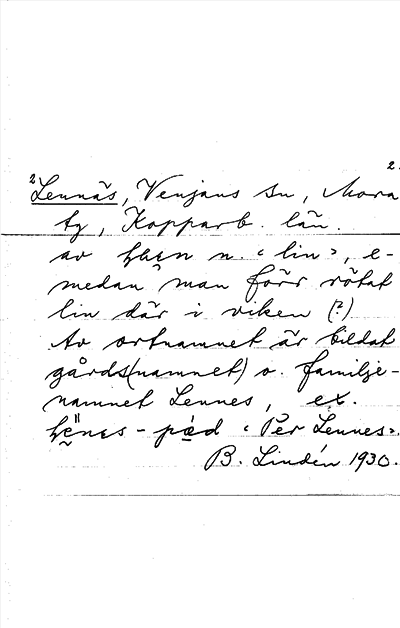 2.
²Lennäs, Venjans sn, Mora
tg, Kopparb. län.
av n. "lin", e-
medan man förr rötat
lin där i viken (?)
Av ortnamnet är bildat
gårds(namnet) o. familje-
namnet Lennes, ex.
"Per Lennes".
B. Lindén 1930.